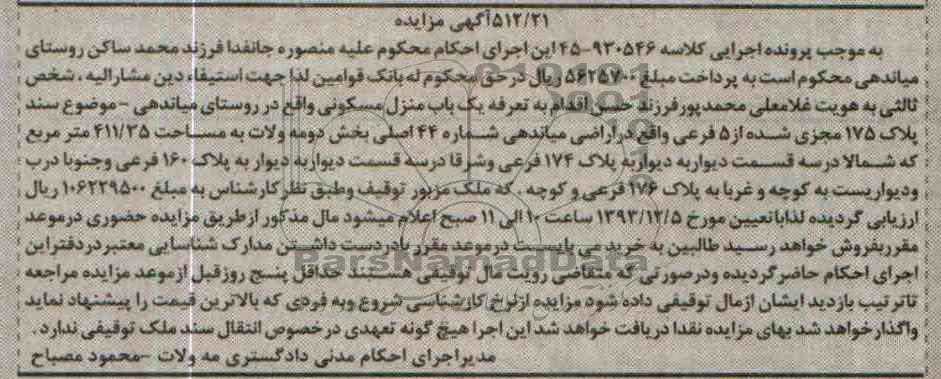 ۵۱۲/۲۱آگهی مزایده
به موجب پرونده اجرایی کلاسه ۹۳۰۵۴۶-۴۵ این اجرای احکام محکوم علیه منصوره جانفدا فرزند محمد ساکن روستای
میاندهی محکوم است به پرداخت مبلغ ۵۶۲۵۷۰۰ ریال در حق محکوم له بانک قوامین لذا جهت استیفاء دین مشارالیه ، شخص
ثالثی به هویت غلامعلی محمدپور فرزند حسن اقدام به تعرفه یک باب منزل مسکونی واقع در روستای میاندهی -موضوع سند
پلاک ۱۷۵ مجزی شده از ۵ فرعی واقع در اراضی میاندهی شماره ۴۴ اصلی بخش دو مه ولات به مساحت ۴۱۱/۳۵ متر مربع
که شمالا در سه قسمت دیوار به دیوار به پلاک ۱۷۴ فرعی وشرقا در سه قسمت دیوار به دیوار به پلاک ۱۶۰ فرعی وجنوبا درب
ودیواریست به کوچه و غربا به پلاک ۱۷۶ فرعی و کوچه . که ملک مزبور توقیف وطبق نظر کارشناس به مبلغ ۱۰۶۲۲۹۵۰۰ ریال
ارزیابی گردیده لذا با تعیین مورخ ۱۳۹۳/۱۲/۵ ساعت ۱۰ الی ۱۱ صبح اعلام میشود مال مذکور از طریق مزایده حضوری در موعد
مقرر بفروش خواهد رسید طالبین به خرید می بایست در موعد مقرر با در دست داشتن مدارک شناسایی معتبر در دفتر این
اجرای احکام حاضر گردیده و در صورتی که متقاضی رویت مال توقیفی هستند حداقل پنج روز قبل از موعد مزایده مراجعه
تا ترتیب بازدید ایشان از مال توقیفی داده شود مزایده از نرخ کارشناسی شروع وبه فردی که بالاترین قیمت را پیشنهاد نماید
واگذار خواهد شد بهای مزایده نقدا دریافت خواهد شد این اجرا هیچ گونه تعهدی در خصوص انتقال سند ملک توقیفی ندارد .
مدیر اجرای احکام مدنی دادگستری مه ولات -محمود مصباح
ParsNamadData